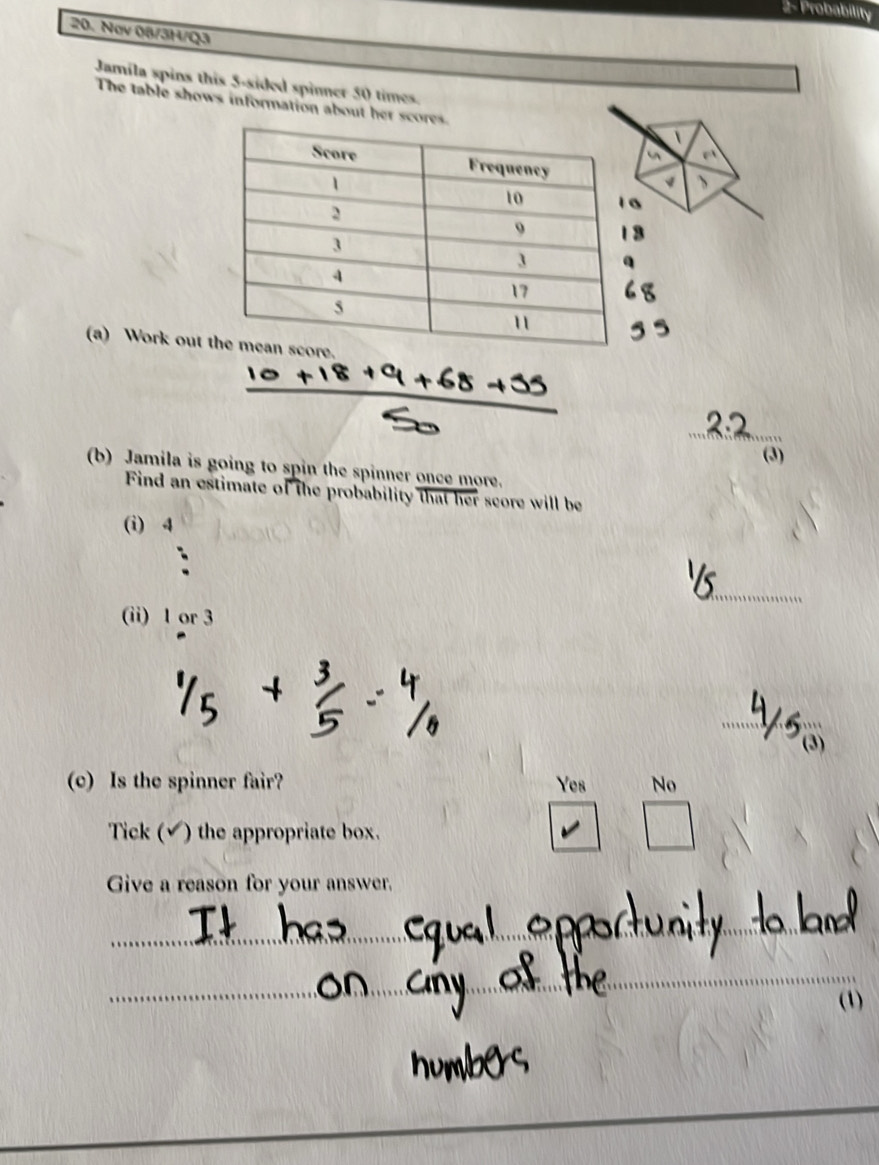 2- Probability
20. Nov 08/3H/Q3
Jamila spins this 5-sided spinner 50 times.
The table shows information about her scores.
Score Frequency
1 10 10
2 9 18
3 3 9
4 17 68
5 11 55
1
2
3
4
5
(a) Work out the mean score.
10 + 18 + 9 + 68 + 55
50
2.2
(3)
(b) Jamila is going to spin the spinner once more.
Find an estimate of the probability that her score will be
(i) 4
1/5
(ii) 1 or 3
1/5 + 3/5 = 4/
4/5
(3)
(c) Is the spinner fair?
Yes No
Tick (✓) the appropriate box.
✓
Give a reason for your answer.
It has equal opportunity to land
on any of the
(1)
numbers